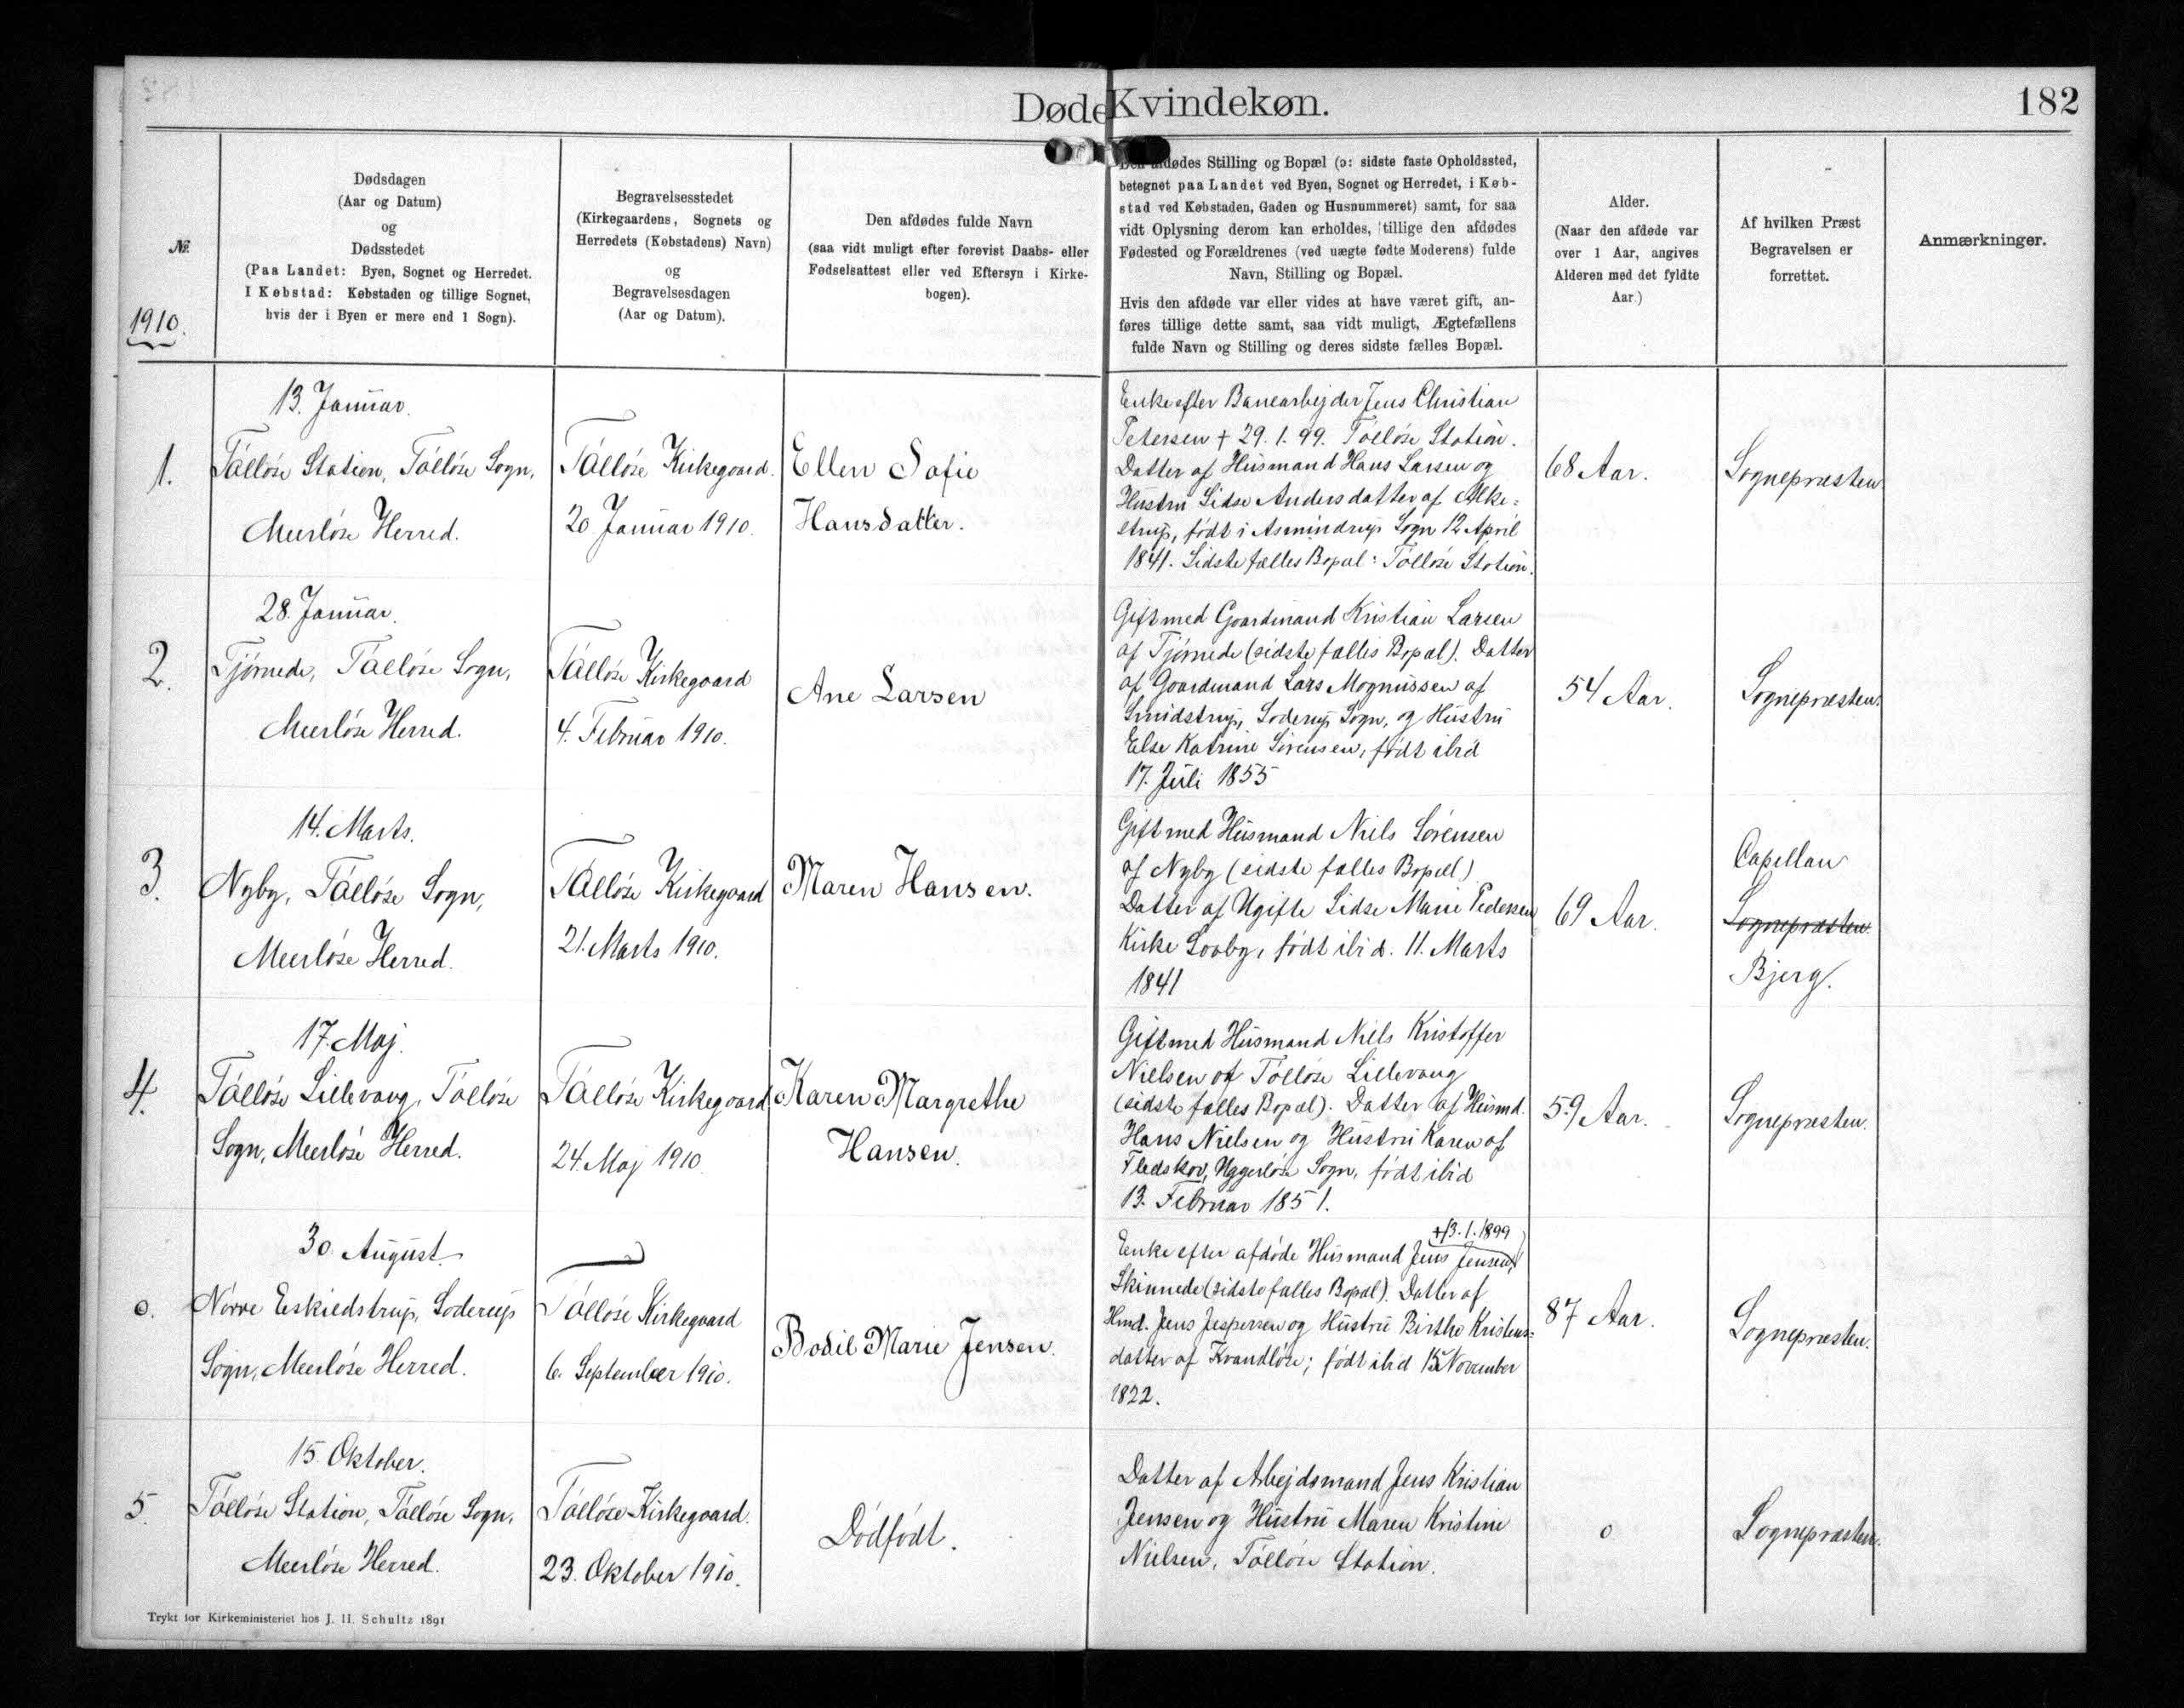 Døde Kvindekøn.
182
Nr.
1910.
Dødsdagen
(Aar og Datum)
og
Dødsstedet
(Paa Landet: Byen, Sognet og Herredet.
I Købstad: Købstaden og tillige Sognet,
hvis der i Byen er mere end 1 Sogn).
Begravelsesstedet
(Kirkegaardens, Sognets og
Herredets (Købstadens) Navn)
og
Begravelsesdagen
(Aar og Datum).
Den afdødes fulde Navn
(saa vidt muligt efter forevist Daabs- eller
Fødselsattest eller ved Eftersyn i Kirke-
bogen).
Den afdødes Stilling og Bopæl (ɔ: sidste faste Opholdssted,
betegnet paa Landet ved Byen, Sognet og Herredet, i Køb-
stad ved Købstaden, Gaden og Husnummeret) samt, for saa
vidt Oplysning derom kan erholdes, tillige den afdødes
Fødested og Forældrenes (ved uægte fødte Moderens) fulde
Navn, Stilling og Bopæl.
Hvis den afdøde var eller vides at have været gift, an-
føres tillige dette samt, saa vidt muligt, Ægtefællens
fulde Navn og Stilling og deres sidste fælles Bopæl.
Alder.
(Naar den afdøde var
over 1 Aar, angives
Alderen med det fyldte
Aar.)
Af hvilken Præst
Begravelsen er
forrettet.
Anmærkninger.
1.
13. Januar.
Tølløse Station, Tølløse Sogn,
Meerløse Herred.
Tølløse Kirkegaard.
20 Januar 1910.
Ellen Sofie
Hansdatter.
Enke efter Banearbejder Jens Christian
Petersen + 29.1.99. Tølløse Station.
Datter af Husmand Hans Larsen og
Hustru Sidse Andersdatter af Alke=
strup, født i Asmindrup Sogn 12 April
1841. Sidste fælles Bopæl: Tølløse Station.
68 Aar.
Sognepræsten
2.
28. Januar.
Tjørnede, Tølløse Sogn,
Meerløse Herred.
Tølløse Kirkegaard
4. Februar 1910.
Ane Larsen
Gift med Gaardmand Kristian Larsen
af Tjørnede (sidste fælles Bopæl). Datter
af Gaardmand Lars Mognussen af
Smidstrup, Soderup Sogn, og Hustru
Else Katrine Sørensen, født ibid
17. Juli 1855
54 Aar.
Sognepræsten.
3.
14. Marts.
Nyby, Tølløse Sogn,
Meerløse Herred.
Tølløse Kirkegaard
21. Marts 1910.
Maren Hansen.
Gift med Husmand Niels Sørensen
af Nyby (sidste fælles Bopæl)
Datter af Ugifte Sidse Marie Pedersen
Kirke Saaby, født ibid. 11. Marts
1841
69 Aar.
Capellan
Sognepræsten
Bjerg.
4.
17. Maj.
Tølløse Lillevang, Tølløse
Sogn, Meerløse Herred.
Tølløse Kirkegaard
24. Maj 1910.
Karen Margrethe
Hansen.
Gift med Husmand Niels Kristoffer
Nielsen af Tølløse Lillevang
(sidste fælles Bopæl). Datter af Husmd.
Hans Nielsen og Hustru Karen af
Fledskov, Uggerløse Sogn, født ibid
13. Februar 1851.
59 Aar.
Sognepræsten.
o.
30. August.
Nørre Eskildstrup, Soderup
Sogn, Meerløse Herred.
Tølløse Kirkegaard
6. September 1910.
Bodil Marie Jensen.
+13.1.1899
Enke efter afdøde Husmand Jens Jensen,
Skimmede (sidste fælles Bopæl). Datter af
Hmd. Jens Jespersen og Hustru Birthe Kristens=
datter af Kvandløse; født ibid 15 November
1822.
87 Aar.
Sognepræsten.
5.
15. Oktober.
Tølløse Station, Tølløse Sogn,
Meerløse Herred.
Tølløse Kirkegaard.
23. Oktober 1910.
Dødfødt.
Datter af Arbejdsmand Jens Kristian
Jensen og Hustru Maren Kristine
Nielsen, Tølløse Station.
o
Sognepræsten.
Trykt for Kirkeministeriet hos J. H. Schultz 1891